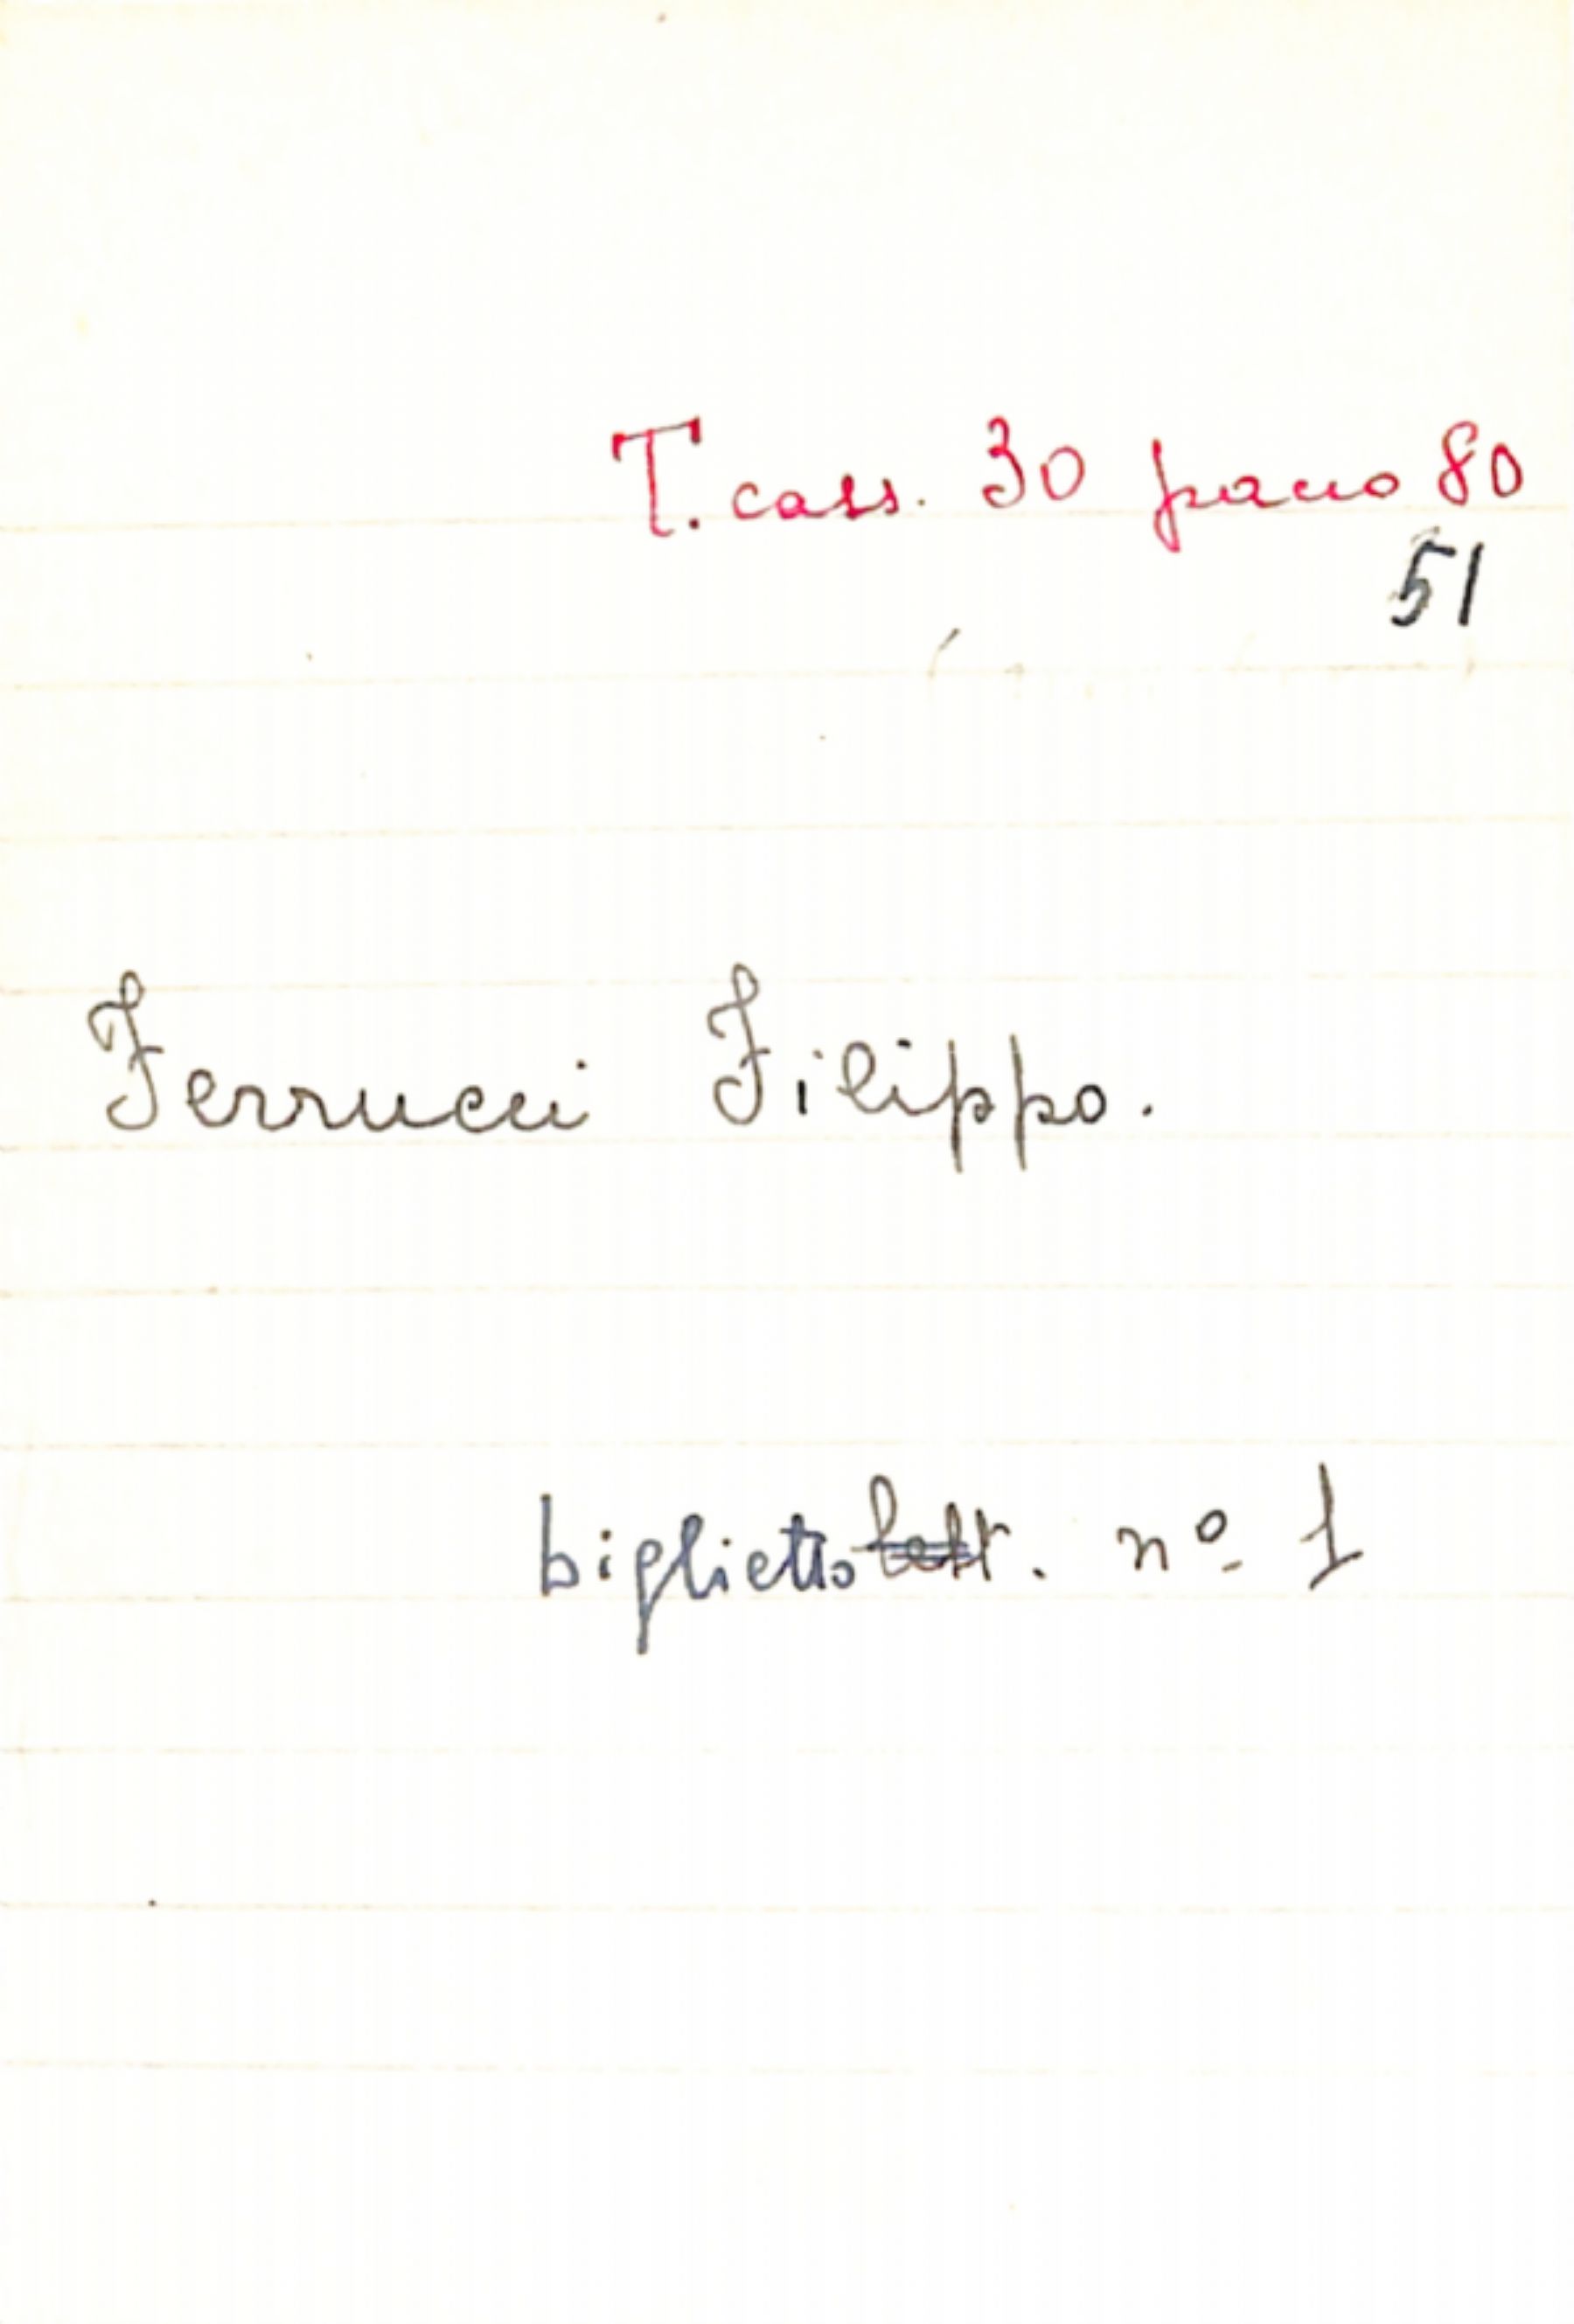 T. cass. 30 pacco 80
51
Ferrucci Filippo.
biglietto lett. nº 1